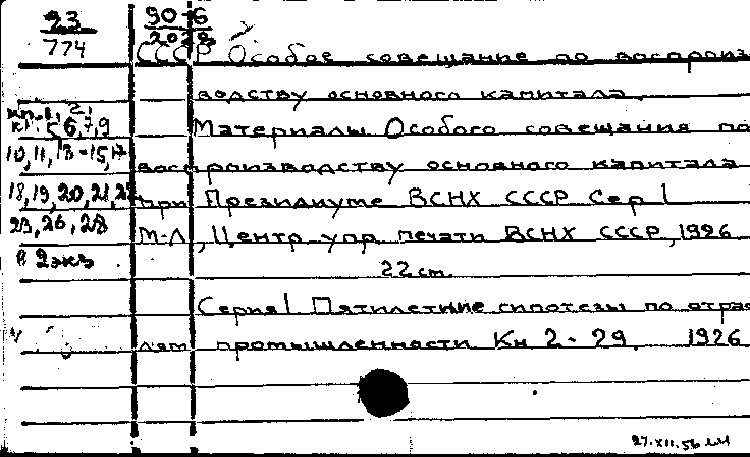 23
774
90-6
2028
СССР Особое совещание по воспроиз
водству основного капитала.
Материалы Особого совещания по
воспроизводству основного капитала
при Президиуме ВСНХ СССР Сер 1
М-Л, Центр. упр. печати ВСНХ СССР, 1926
22 см.
Серия 1 Пятилетние гипотезы по отрас
лям промышленности Кн 2 - 29. 1926
5 6, 7, 9
10, 11, 13-15, 17
18, 19, 20, 21, 2
23, 26, 28
в 2 экз
27.XII.56